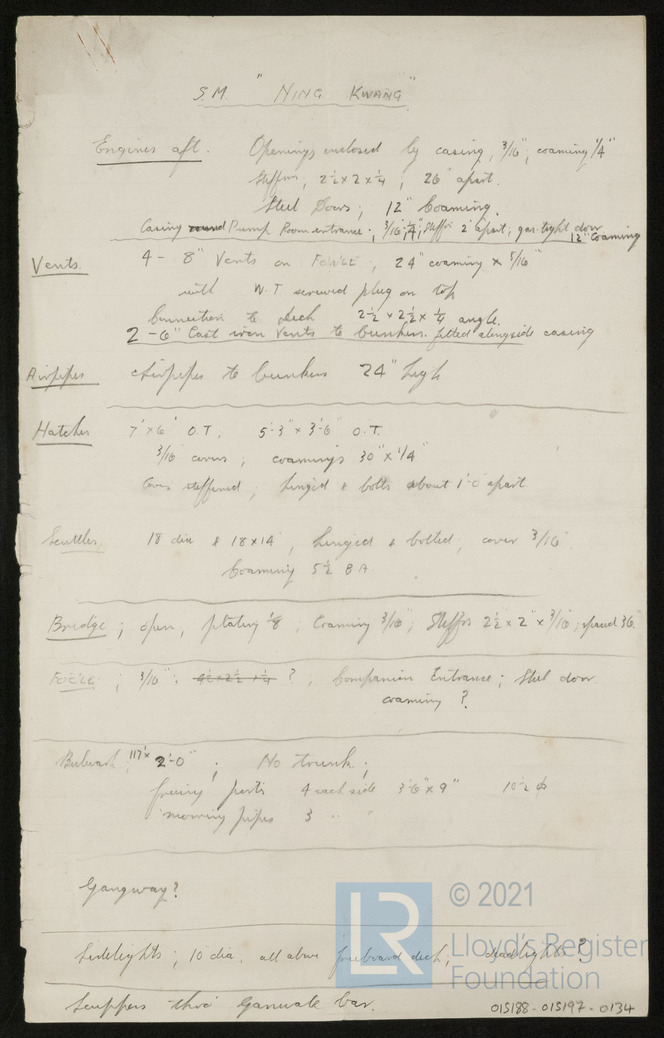 S.M. "NING KWANG"
Engines aft. Openings enclosed by casing, 3/16", coaming 1/4"
Stiffrs, 2 1/2 x 2 x 1/4, 26" apart.
Steel Doors; 12" Coaming.
Casing round Pump Room entrance; 3/16", 1/4", Stiffrs 2' apart; gas-tight door
12" Coaming
Vents 4 - 8" Vents on Fo'c'le; 24" coaming x 5/16"
with W.T screwed plug on top
Connection to deck 2 1/2 x 2 1/2 x 1/4 angle.
2 - 6" Cast iron Vents to bunkers. fitted alongside casing
Airpipes Airpipes to bunkers 24" high
Hatches 7' x 6' O.T. 5'-3" x 3'-6" O.T.
3/16 covers; coamings 30" x 1/4"
Covers stiffened; hinged & bolts about 1'-0 apart
Scuttles 18 dia & 18 x 14, hinged & bolted, cover 3/16
Coaming 5 1/2 B A.
Bridge; open, plating 1/8; Coaming 3/16"; Stiffrs 2 1/2 x 2" x 3/16; spaced 36
Fo'c'le; 3/16"; ?; Companion Entrance; Steel door
coaming ?
Bulwark; 117' x 2'-0"; No trunk;
freeing ports 4 each side 3'-6" x 9"
mooring pipes 3 " "
Gangway?
Sidelights; 10 dia, all above freeboard deck, deadlights?
Scuppers thro' Gunwale bar.
015188-015197-0134
LR
© 2021
Lloyd's Register
Foundation